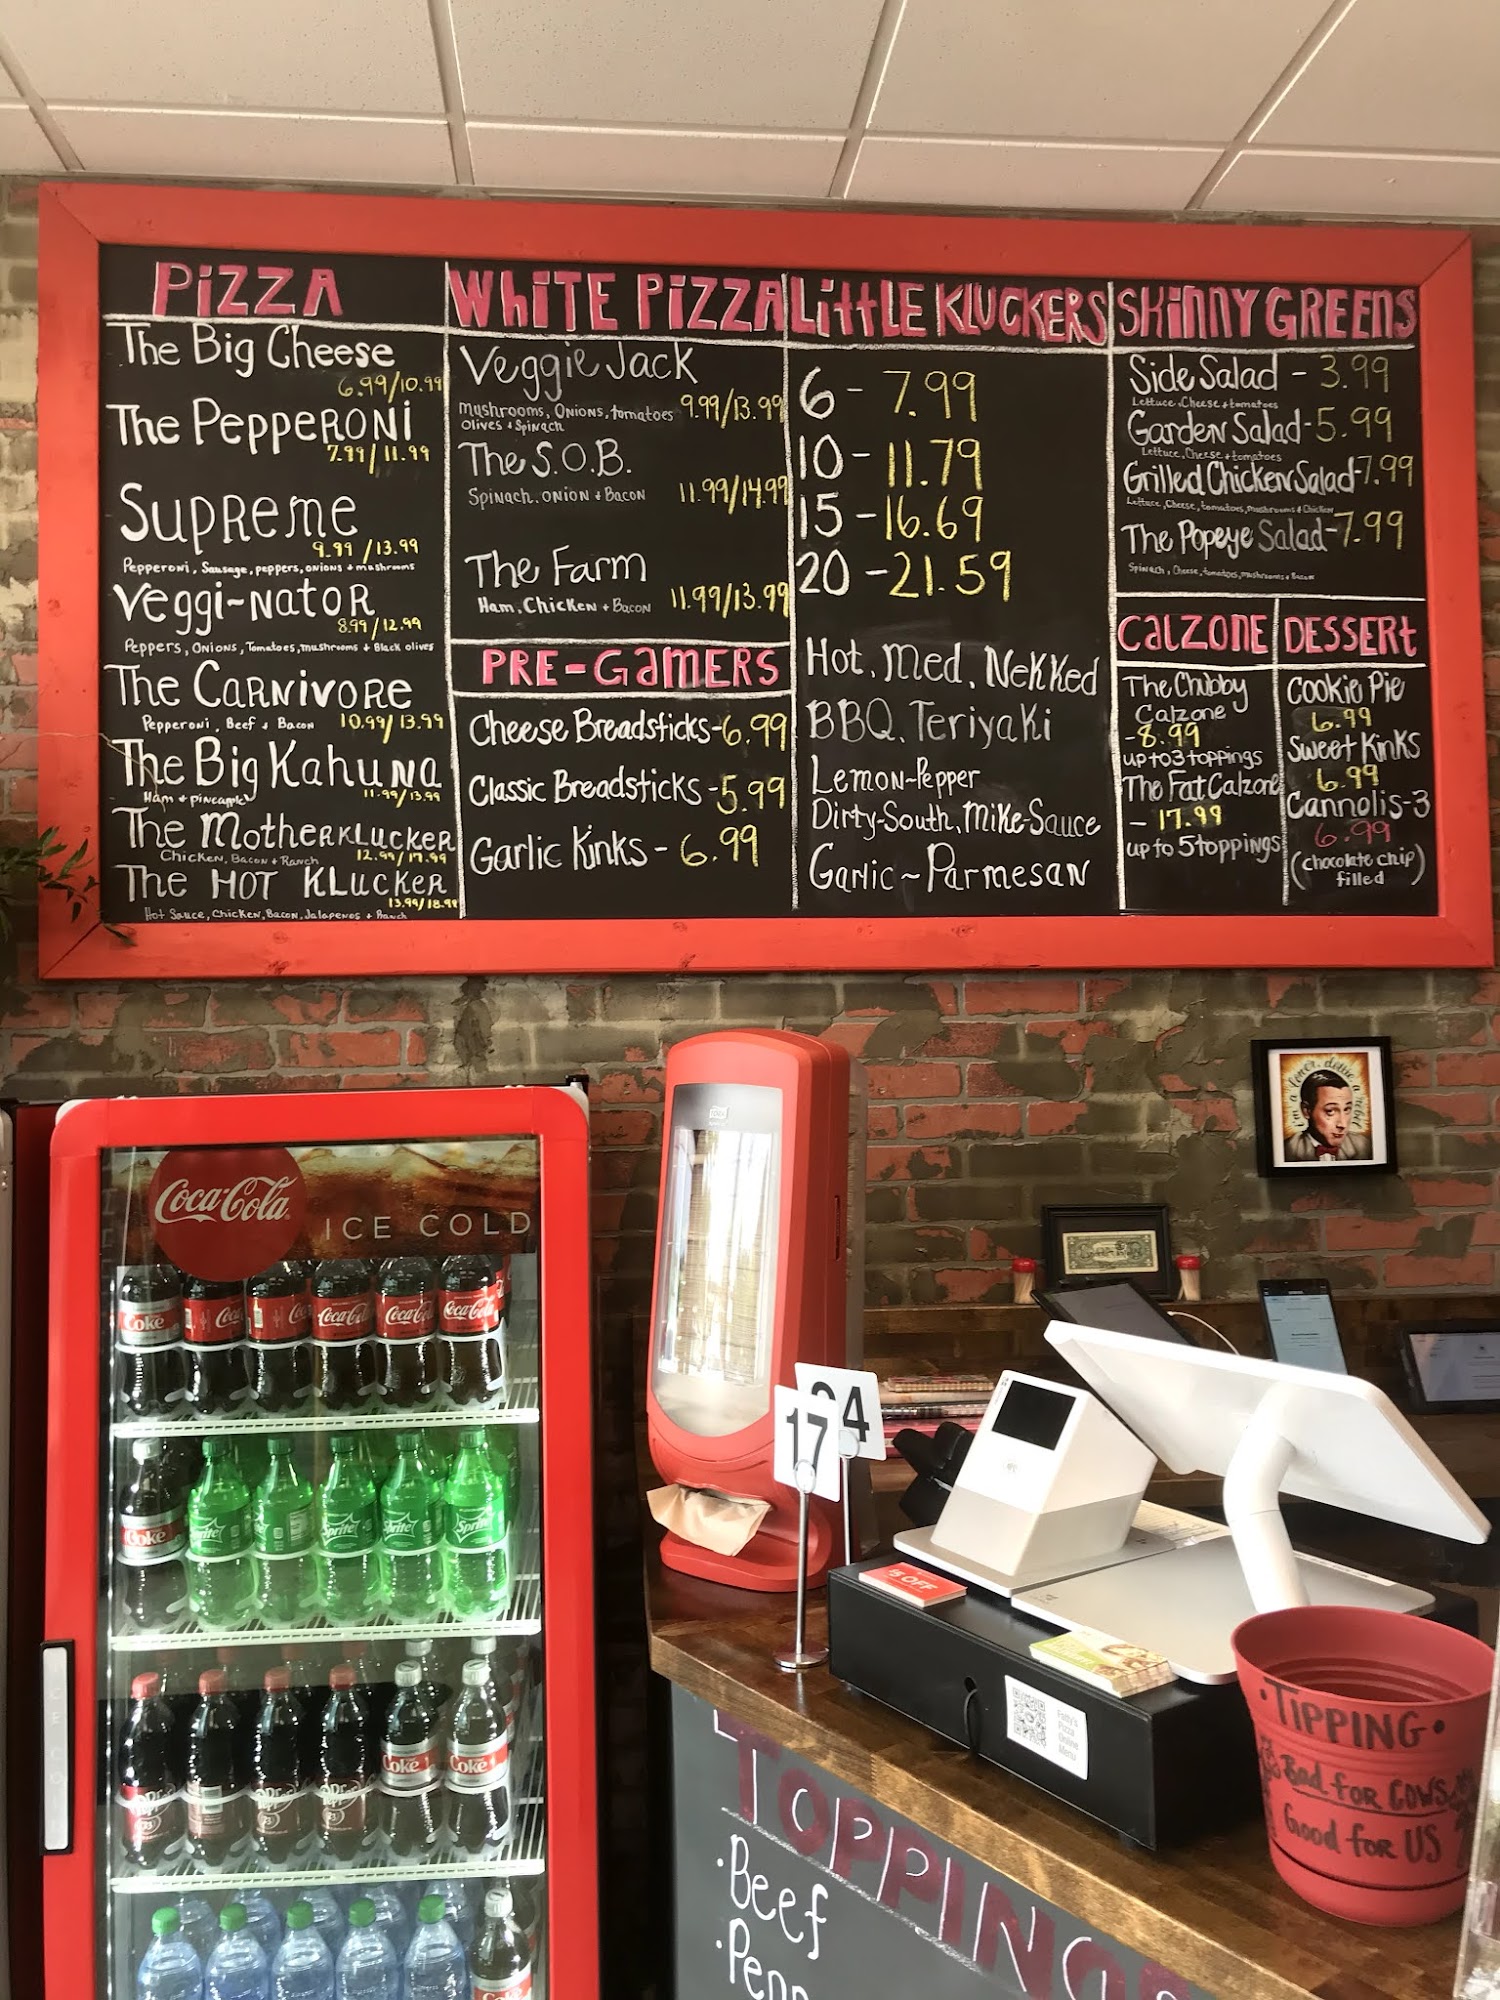 PiZZA
The Big Cheese
6.99/10.99
The PeppeRONi
7.99/11.99
SupReme
9.99/13.99
Pepperoni, Sausage, peppers, onions + mushrooms
Veggi-NATOR
8.99/12.99
Peppers, Onions, Tomatoes, mushrooms + Black olives
The CARNivORe
Pepperoni, Beef + Bacon 10.99/13.99
The Big KahuNA
Ham + pineapple 11.99/13.99
The MotheRKLUCKER
Chicken, Bacon + Ranch
The HOT KLucKeR
13.99/18.99
Hot Sauce, Chicken, Bacon, Jalapenos + Ranch
WhiTE PiZZA
Veggie Jack
Mushrooms, Onions, tomatoes 9.99/13.99
Olives + Spinach
The S.O.B.
Spinach, ONION + BACON 11.99/14.99
The FARM
Ham, Chicken + Bacon 11.99/13.99
PRE-GaMERS
Cheese Breadsticks-6.99
Classic Breadsticks-5.99
Garlic Kinks-6.99
LittLE KLUCKERS
6-7.99
10-11.79
15-16.69
20-21.59
Hot, Med, NeKKed
BBQ, Teriyaki
Lemon-Pepper
Dirty-South, Mike-Sauce
Garlic~Parmesan
SKiNNY GREENS
Side Salad - 3.99
Lettuce, Cheese + tomatoes
Garden Salad-5.99
Lettuce, Cheese + tomatoes
Grilled Chicken Salad-7.99
Lettuce, Cheese, tomatoes, mushrooms + Chicken
The Popeye Salad-7.99
Spinach, Cheese, tomatoes, mushrooms + Bacon
CaLZONE
The Chubby
Calzone
-8.99
up to 3 toppings
The Fat Calzone
- 17.99
up to 5 toppings
DESSERt
Cookie Pie
6.99
Sweet Kinks
6.99
Cannolis-3
6.99
(chocolate chip
filled)
i'm a loner, dottie a rebel
Coca-Cola
ICE COLD
Coke
Coca-Cola
Coca-Cola
Coca-Cola
Coke
Sprite
Sprite
Sprite
Sprite
Coke
Coke
17
24
$5 OFF
Fatty's
Pizza
Online
Menu
•TIPPING•
Bad for COWS
Good for US
TOPPING
·Beef